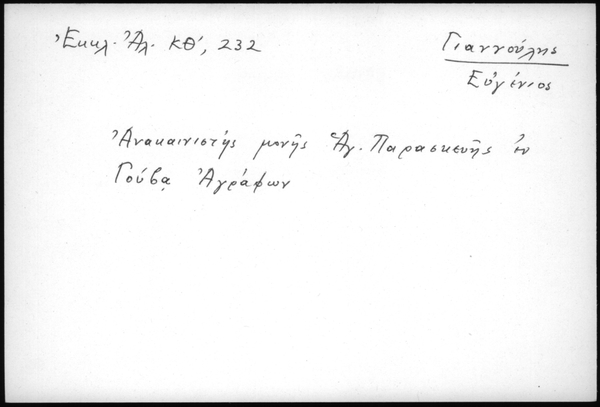 Ἐκκλ. Ἀλ. ΚΘ΄, 232
Γιαννούλης
Εὐγένιος
Ἀνακαινιστὴς μονῆς Ἁγ. Παρασκευῆς ἐν
Γούβᾳ Ἀγράφων